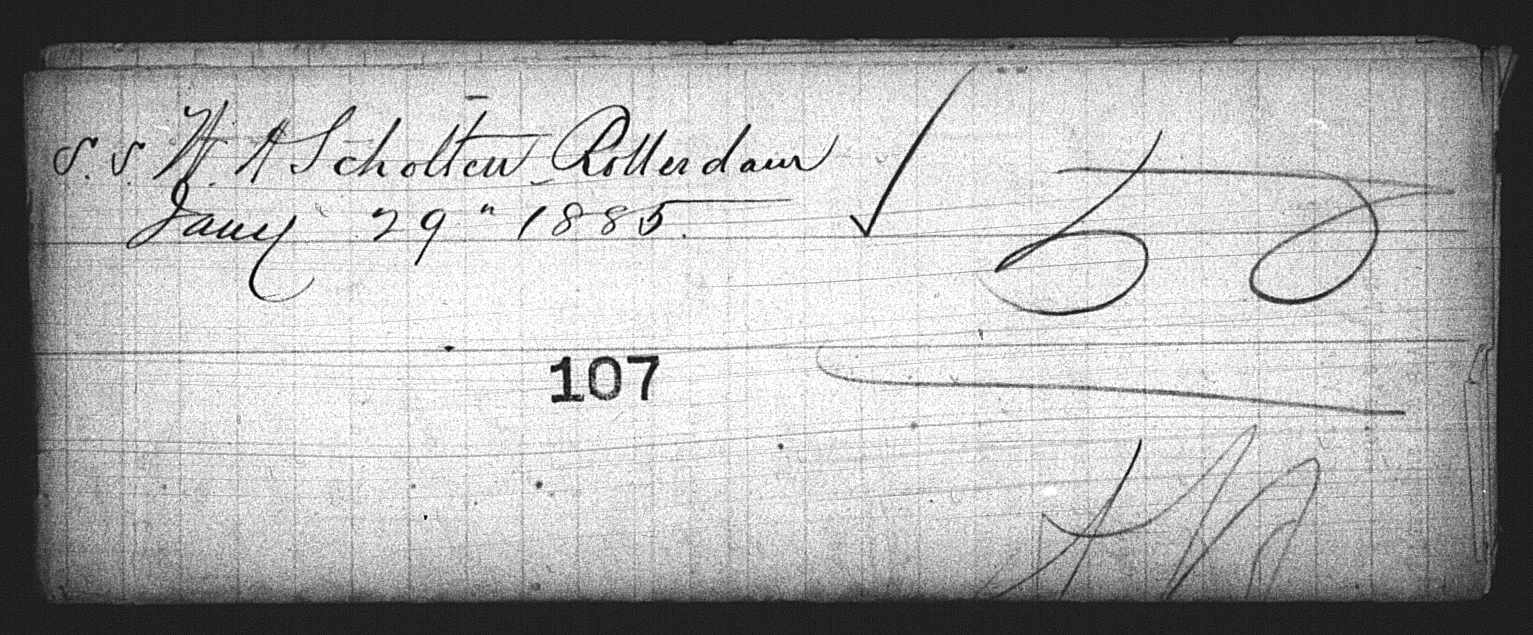 S.S. W. A Scholten Rotterdam
Jany 29" 1885.
107